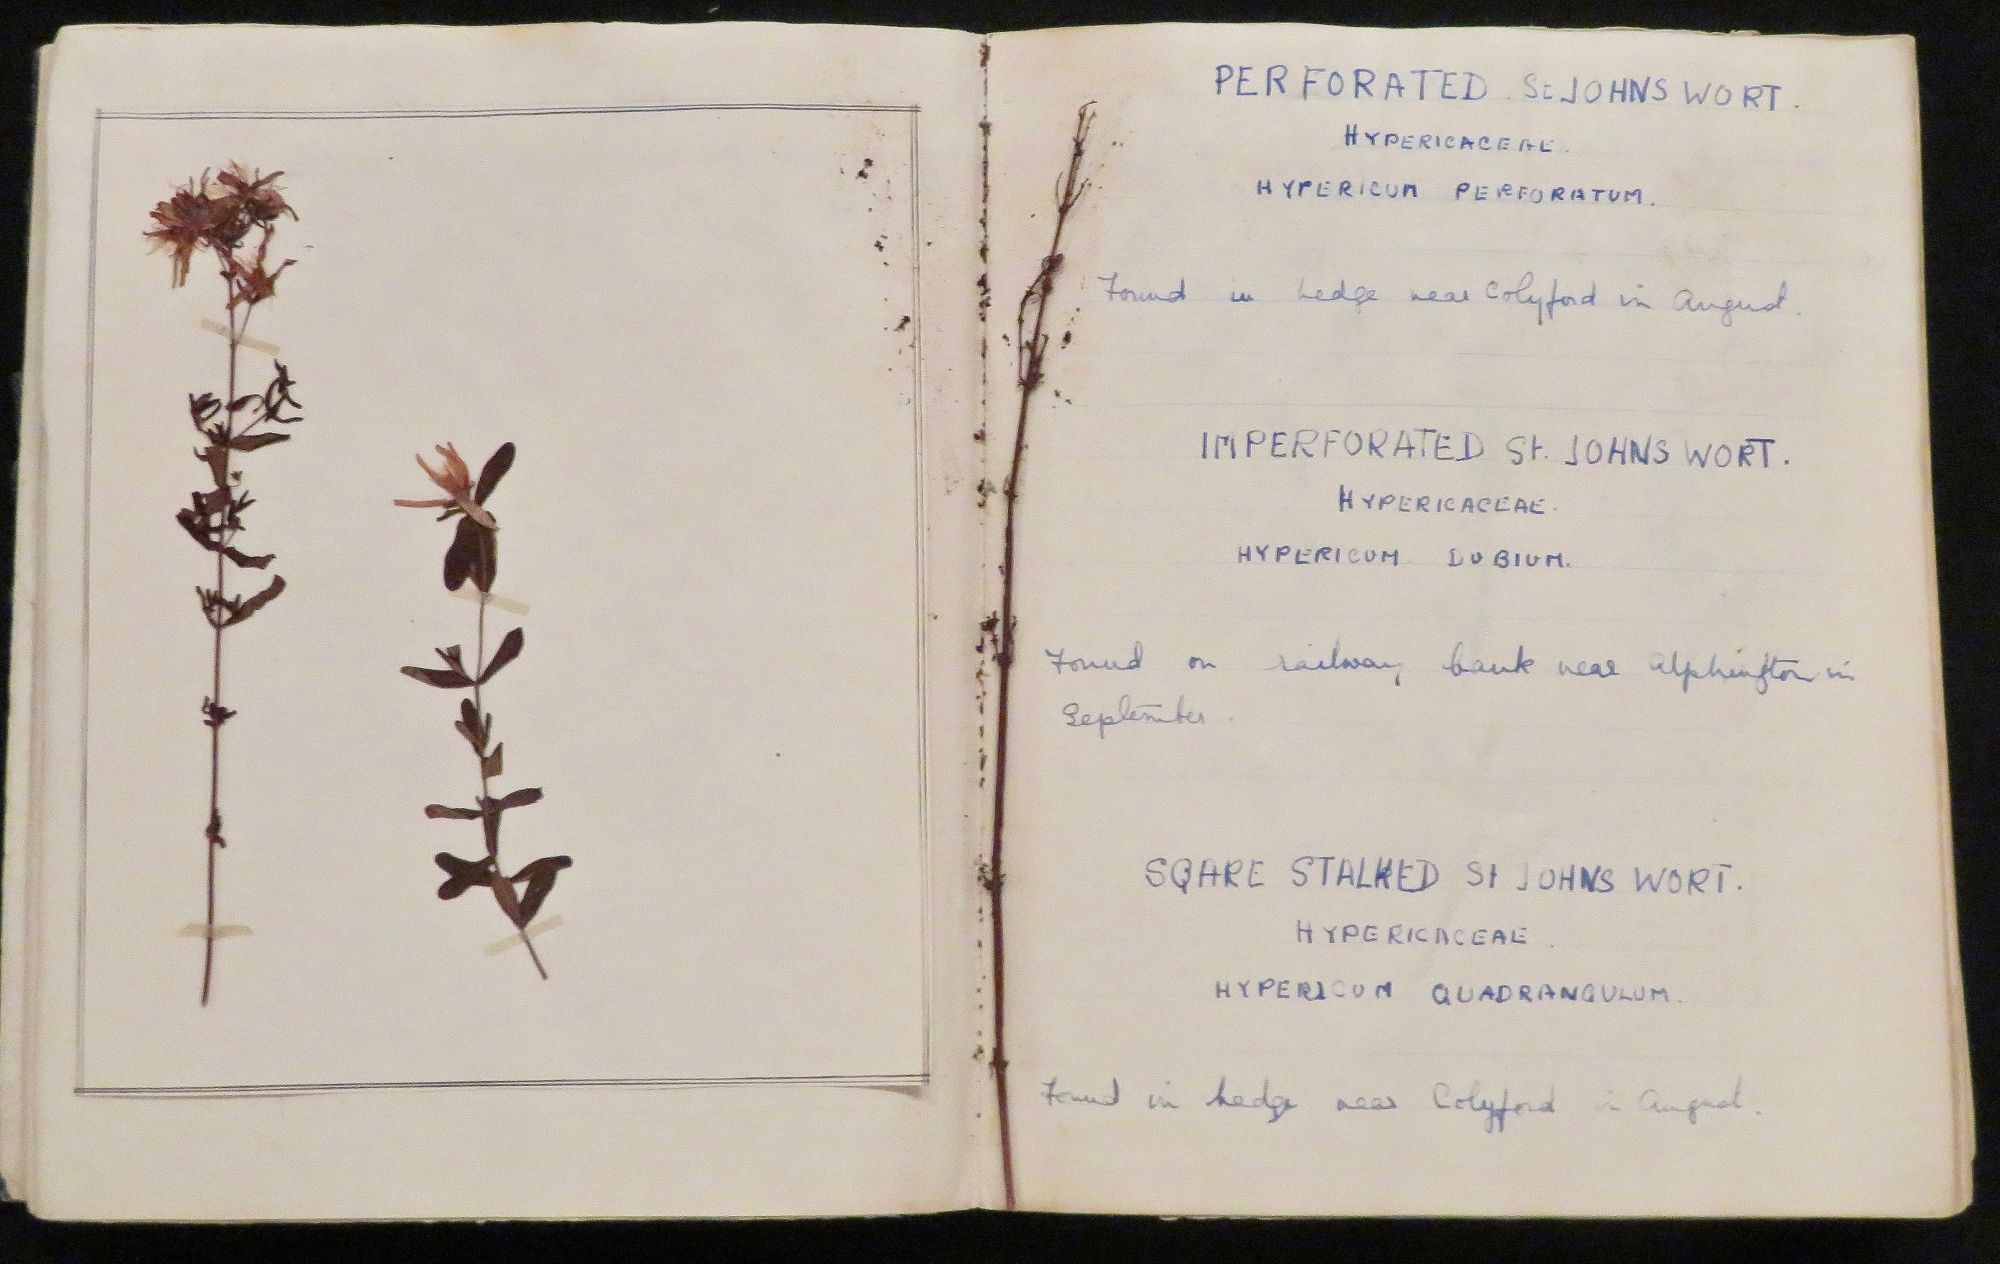 PERFORATED St JOHNS WORT.
HYPERICACEAE.
HYPERICUM PERFORATUM.
Found in hedge near Colyford in August.
IMPERFORATED St. JOHNS WORT.
HYPERICACEAE.
HYPERICUM DUBIUM.
Found on railway bank near Alphington in
September.
SQARE STALKED St JOHNS WORT.
HYPERICACEAE.
HYPERICUM QUADRANGULUM.
Found in hedge near Colyford in August.